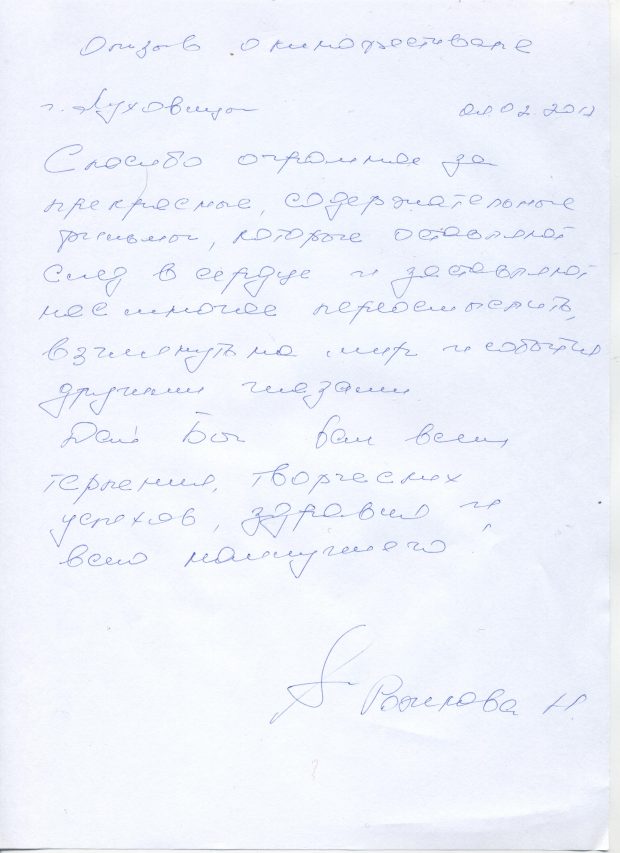 Отзыв о кинофестивале
г. Луховицы 02 2012
Спасибо огромное за
прекрасные, содержательные
фильмы, которые оставляют
след в сердце и заставляют
нас многое переосмыслить,
взглянуть на мир и события
другими глазами.
Дай Бог Вам всем
терпения, творческих
успехов, здравия и
всего наилучшего!
Н.